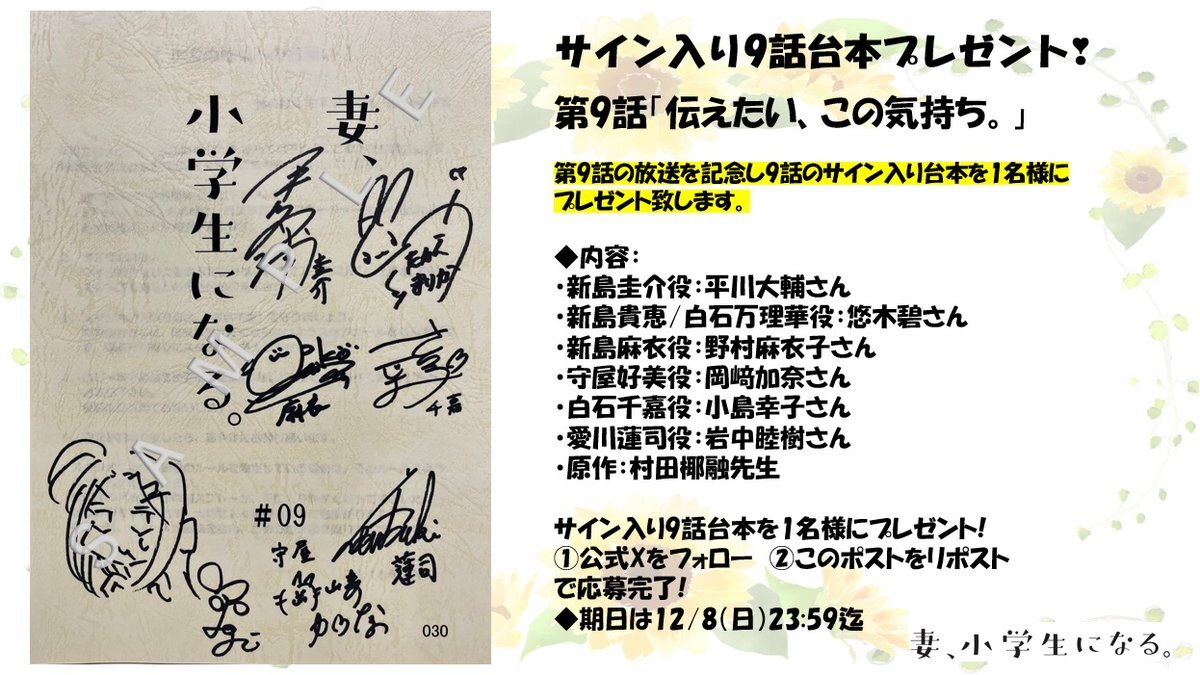 妻、
小学生になる。
SAMPLE
圭介
麻衣
千嘉
#09
守屋
蓮司
030
サイン入り9話台本プレゼント❣
第9話「伝えたい、この気持ち。」
第9話の放送を記念し9話のサイン入り台本を1名様に
プレゼント致します。
◆内容:
・新島圭介役:平川大輔さん
・新島貴恵/白石万理華役:悠木碧さん
・新島麻衣役:野村麻衣子さん
・守屋好美役:岡﨑加奈さん
・白石千嘉役:小島幸子さん
・愛川蓮司役:岩中睦樹さん
・原作:村田椰融先生
サイン入り9話台本を1名様にプレゼント!
①公式Xをフォロー ②このポストをリポスト
で応募完了!
◆期日は12/8(日)23:59迄
妻、小学生になる。